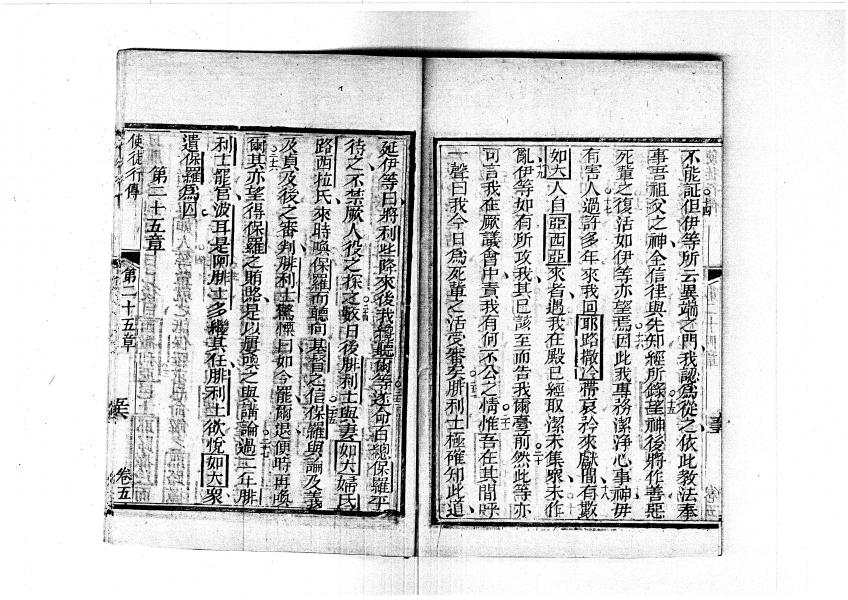 不能証但伊等所云異端之門我認為從之依此教法奉
事吾祖父之神全信律與先知經所錄望神後將作善惡
死輩之復活如伊等亦望焉因此我專務潔淨心事神毋
有害人過許多年來我回耶路撒冷帶哀矜來獻間有數
如大人自亞西亞來者遇我在殿已經取潔未集衆未作
亂伊等如有所攻我其已該至而告我爾臺前然此等亦
可言我在厥議會中責我有何不公之情惟吾在其間呼
一聲曰我今日為死輩之活受審矣腓利士極確知此道
延伊等曰將利些降來後我聽爾等遂命百總保羅平
待之不禁厥人役之探之數日後腓利士與妻如大婦氏
路西拉氏來時喚保羅而聽向基督之信保羅與論及義
及貞及後之審判腓利士驚慄曰如今罷爾退便時再喚
爾其亦望得保羅之賄略是以屢喚之與講論過二年腓
利士罷官波耳是阿腓士多繼其任腓利士欲悅如大衆
遺保羅為囚
第二十五章
使徒行傳
第二十五章
卷五